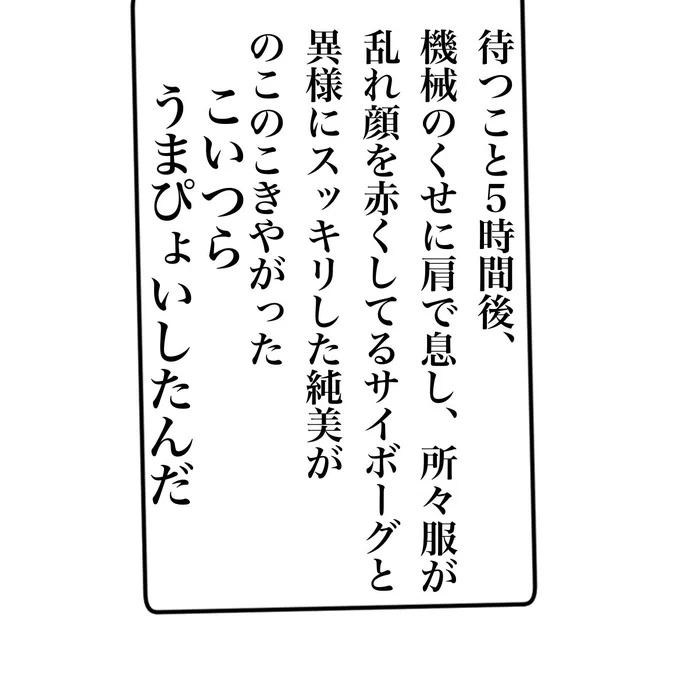 待つこと5時間後、
機械のくせに肩で息し、所々服が
乱れ顔を赤くしてるサイボーグと
異様にスッキリした純美が
のこのこきやがった
こいつら
うまぴょいしたんだ